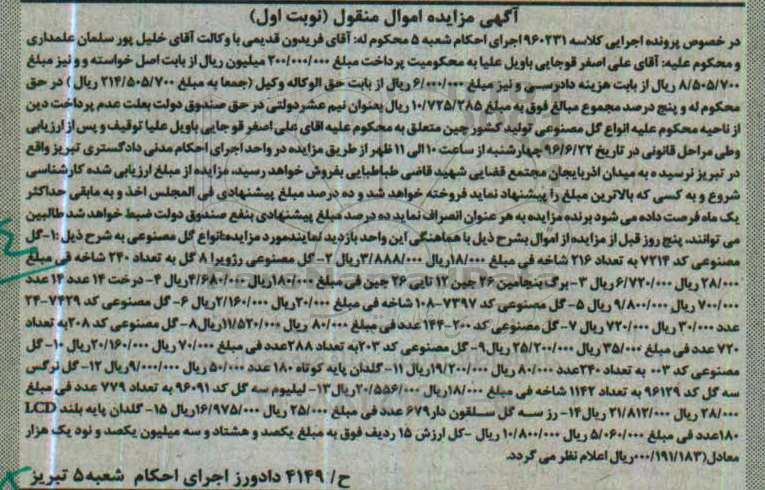 آگهی مزایده اموال منقول (نوبت اول)
در خصوص پرونده اجرایی کلاسه ۹۶۰۲۳۱ اجرای احکام شعبه ۵ محکوم له: آقای فریدون قدیمی با وکالت آقای خلیل پور سلمان علمداری
و محکوم علیه: آقای علی اصغر قوجایی باویل علیا به محکومیت پرداخت مبلغ ۲۰۰/۰۰۰/۰۰۰ میلیون ریال از بابت اصل خواسته و و نیز مبلغ
۸/۵۰۵/۷۰۰ ریال از بابت هزینه دادرسی و نیز مبلغ ۶/۰۰۰/۰۰۰ ریال از بابت حق الوکاله وکیل (جمعا به مبلغ ۲۱۴/۵۰۵/۷۰۰ ریال) در حق
محکوم له و پنج درصد مجموع مبالغ فوق به مبلغ ۱۰/۷۲۵/۲۸۵ ریال بعنوان نیم عشردولتی در حق صندوق دولت بعلت عدم پرداخت دین
از ناحیه محکوم علیه انواع گل مصنوعی تولید کشور چین متعلق به محکوم علیه اقای علی اصغر قو جایی باویل علیا توقیف و پس از ارزیابی
وطی مراحل قانونی در تاریخ ۹۶/۶/۲۲ چهارشنبه از ساعت ۱۰ الی ۱۱ ظهر از طریق مزایده در واحد اجرای احکام مدنی دادگستری تبریز واقع
در تبریز نرسیده به میدان اذربایجان مجتمع قضایی شهید قاضی طباطبایی بفروش خواهد رسید، مزایده از مبلغ ارزیابی شده کارشناسی
شروع و به کسی که بالاترین مبلغ را پیشنهاد نماید فروخته خواهد شد و ده درصد مبلغ پیشنهادی فی المجلس اخذ و به مابقی حداکثر
یک ماه فرصت داده می شود برنده مزایده به هر عنوان انصراف نماید ده درصد مبلغ پیشنهادی بنفع صندوق دولت ضبط خواهد شد طالبین
می توانند، پنج روز قبل از مزایده از اموال بشرح ذیل با هماهنگی این واحد بازدید نمایندمورد مزایده:انواع گل مصنوعی به شرح ذیل :۱-گل
مصنوعی کد ۷۲۱۴ به تعداد ۲۱۶ شاخه فی مبلغ ۱۸/۰۰۰ریال ۳/۸۸۸/۰۰۰ریال ۲- گل مصنوعی رزوپرا ۸ گل به تعداد ۲۴۰ شاخه فی مبلغ
۲۸/۰۰۰ ریال ۶/۷۲۰/۰۰۰ ریال ۳-برگ بنجامین ۲۶ جین ۱۲ تایی ۲۶ جین فی مبلغ ۱۸۰/۰۰۰ریال ۴/۶۸۰/۰۰۰ریال ۴- درخت ۱۴ عدد ۱۴ عدد
۷۰۰/۰۰۰ ریال ۹/۸۰۰/۰۰۰ ریال ۵- گل مصنوعی کد ۷۳۹۷-۱۰۸ شاخه فی مبلغ ۲۰/۰۰۰ریال ۲/۱۶۰/۰۰۰ریال ۶- گل مصنوعی کد ۷۴۲۹-۲۴
عدد ۳۰/۰۰۰ریال ۷۲۰/۰۰۰ ریال ۷- گل مصنوعی کد ۲۰۰-۱۴۴ عدد فی مبلغ ۸۰/۰۰۰ ریال ۱۱/۵۲۰/۰۰۰ریال۸- گل مصنوعی کد ۲۰۸به تعداد
۷۲۰ عدد فی مبلغ ۳۵/۰۰۰ریال ۲۵/۲۰۰/۰۰۰ ریال۹- گل مصنوعی کد ۲۰۳به تعداد ۲۸۸عدد فی مبلغ ۷۰/۰۰۰ ریال ۲۰/۱۶۰/۰۰۰ریال ۱۰- گل
مصنوعی کد ۰۰۳ به تعداد ۲۴۰عدد ۸۰/۰۰۰ ریال ۱۹/۲۰۰/۰۰۰ریال ۱۱- گلدان پایه کوتاه ۱۸۰ عدد ۵۰/۰۰۰ ریال ۹/۰۰۰/۰۰۰ریال ۱۲- گل نرگس
سه گل کد ۹۶۱۲۹ به تعداد ۱۱۴۲ شاخه فی مبلغ ۱۸/۰۰۰ریال ۲۰/۵۵۶/۰۰۰ ریال۱۳- لیلیوم سه گل کد ۹۶۰۹۱ به تعداد ۷۷۹ عدد فی مبلغ
۲۸/۰۰۰ ریال ۲۱/۸۱۲/۰۰۰ ریال۱۴- رز سه گل سلفون دار ۶۷۹ عدد فی مبلغ ۲۵/۰۰۰ ریال ۱۶/۹۷۵/۰۰۰ریال ۱۵- گلدان پایه بلند LCD
۱۸۰عدد فی مبلغ ۵/۰۶۰/۰۰۰ ریال ۱۰/۸۰۰/۰۰۰ ریال -کل ارزش ۱۵ ردیف فوق به مبلغ یکصد و هشتاد و سه میلیون یکصد و نود یک هزار
معادل(۱۸۳/۱۹۱/۰۰۰ریال اعلام نظر می گردد.
ح/ ۴۱۴۹ دادورز اجرای احکام شعبه۵ تبریز